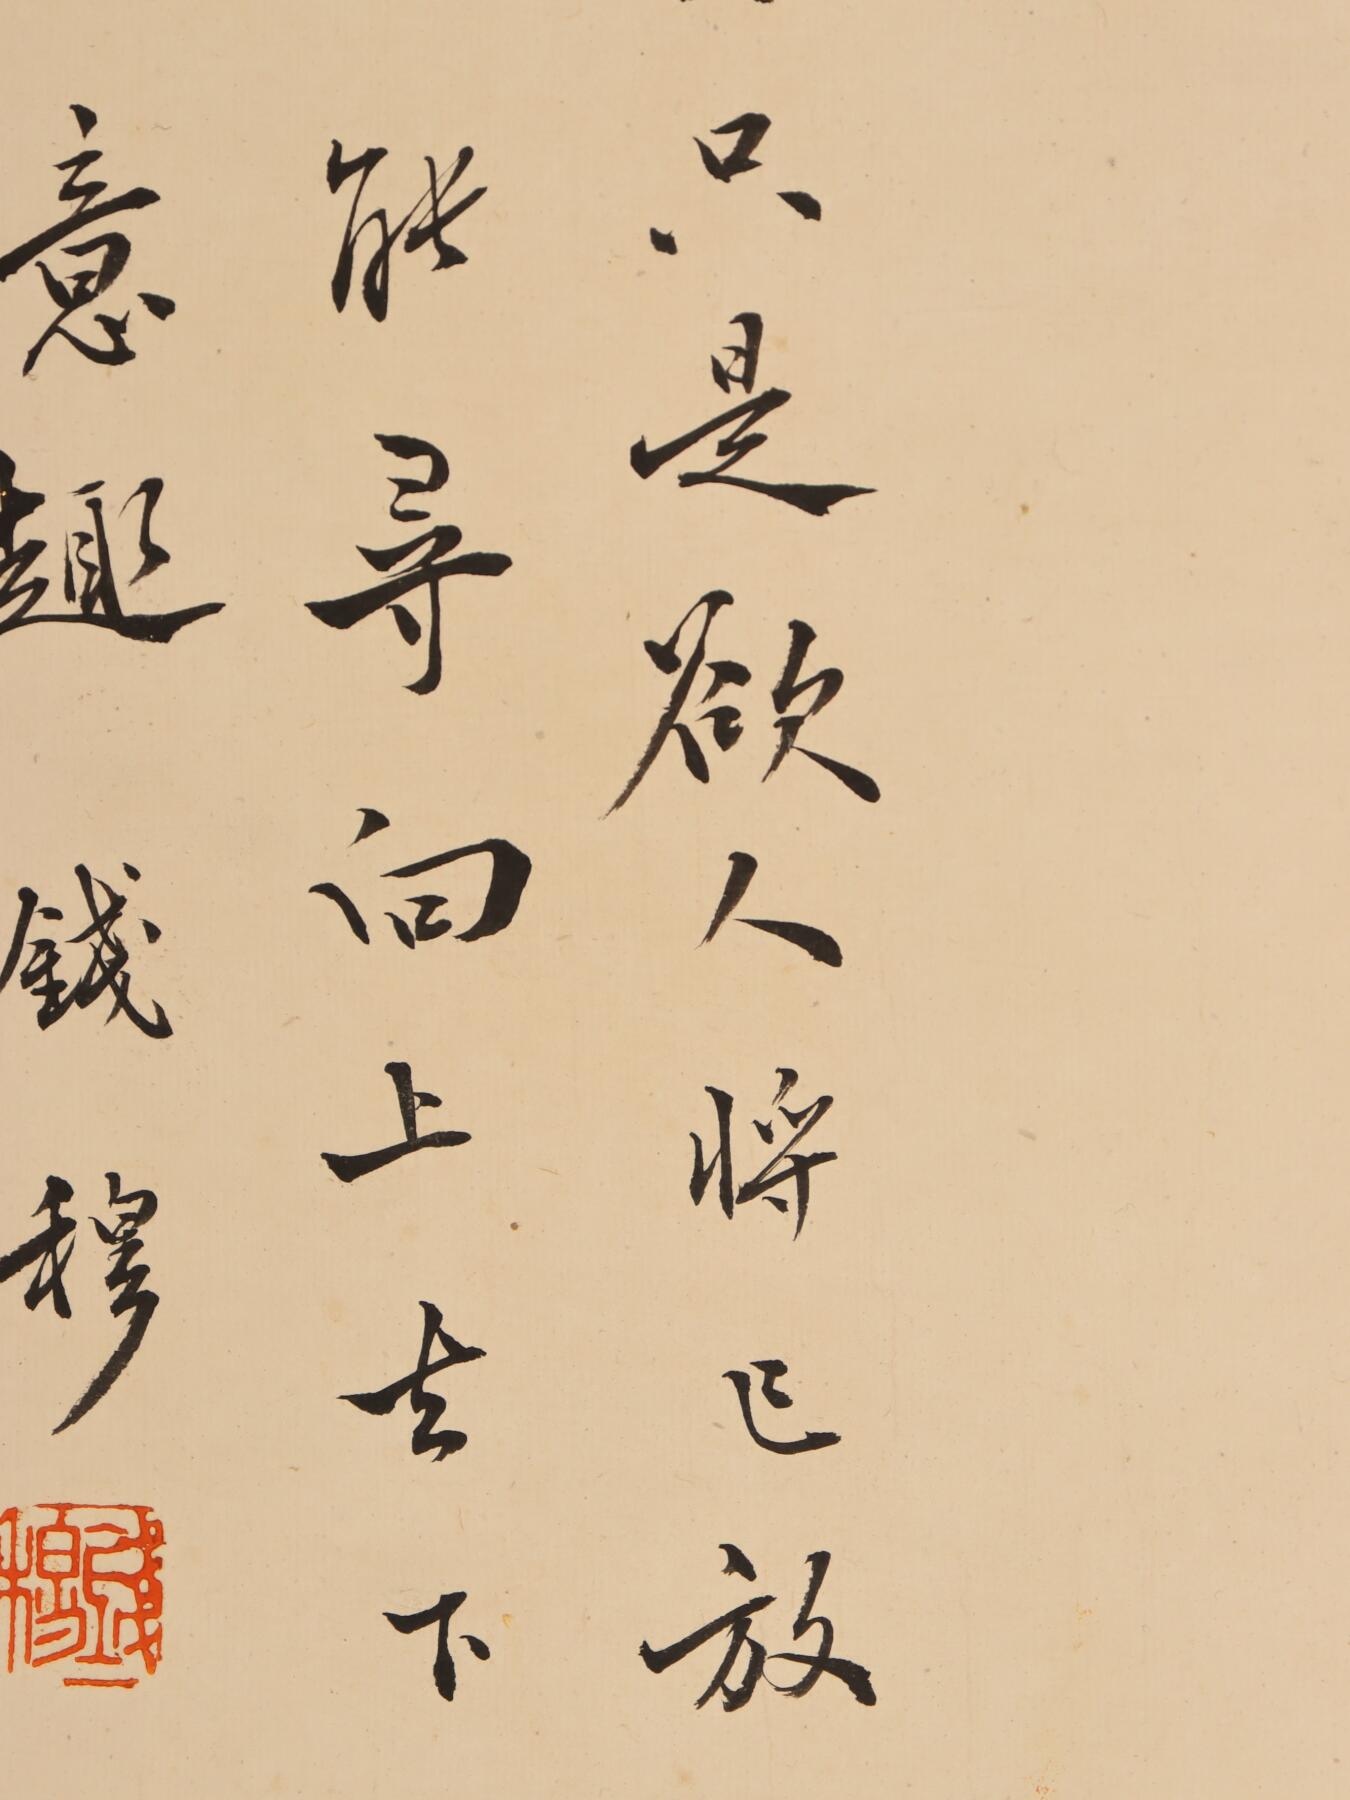 只是欲人將已放
能尋向上去下
意趣 錢穆
錢穆